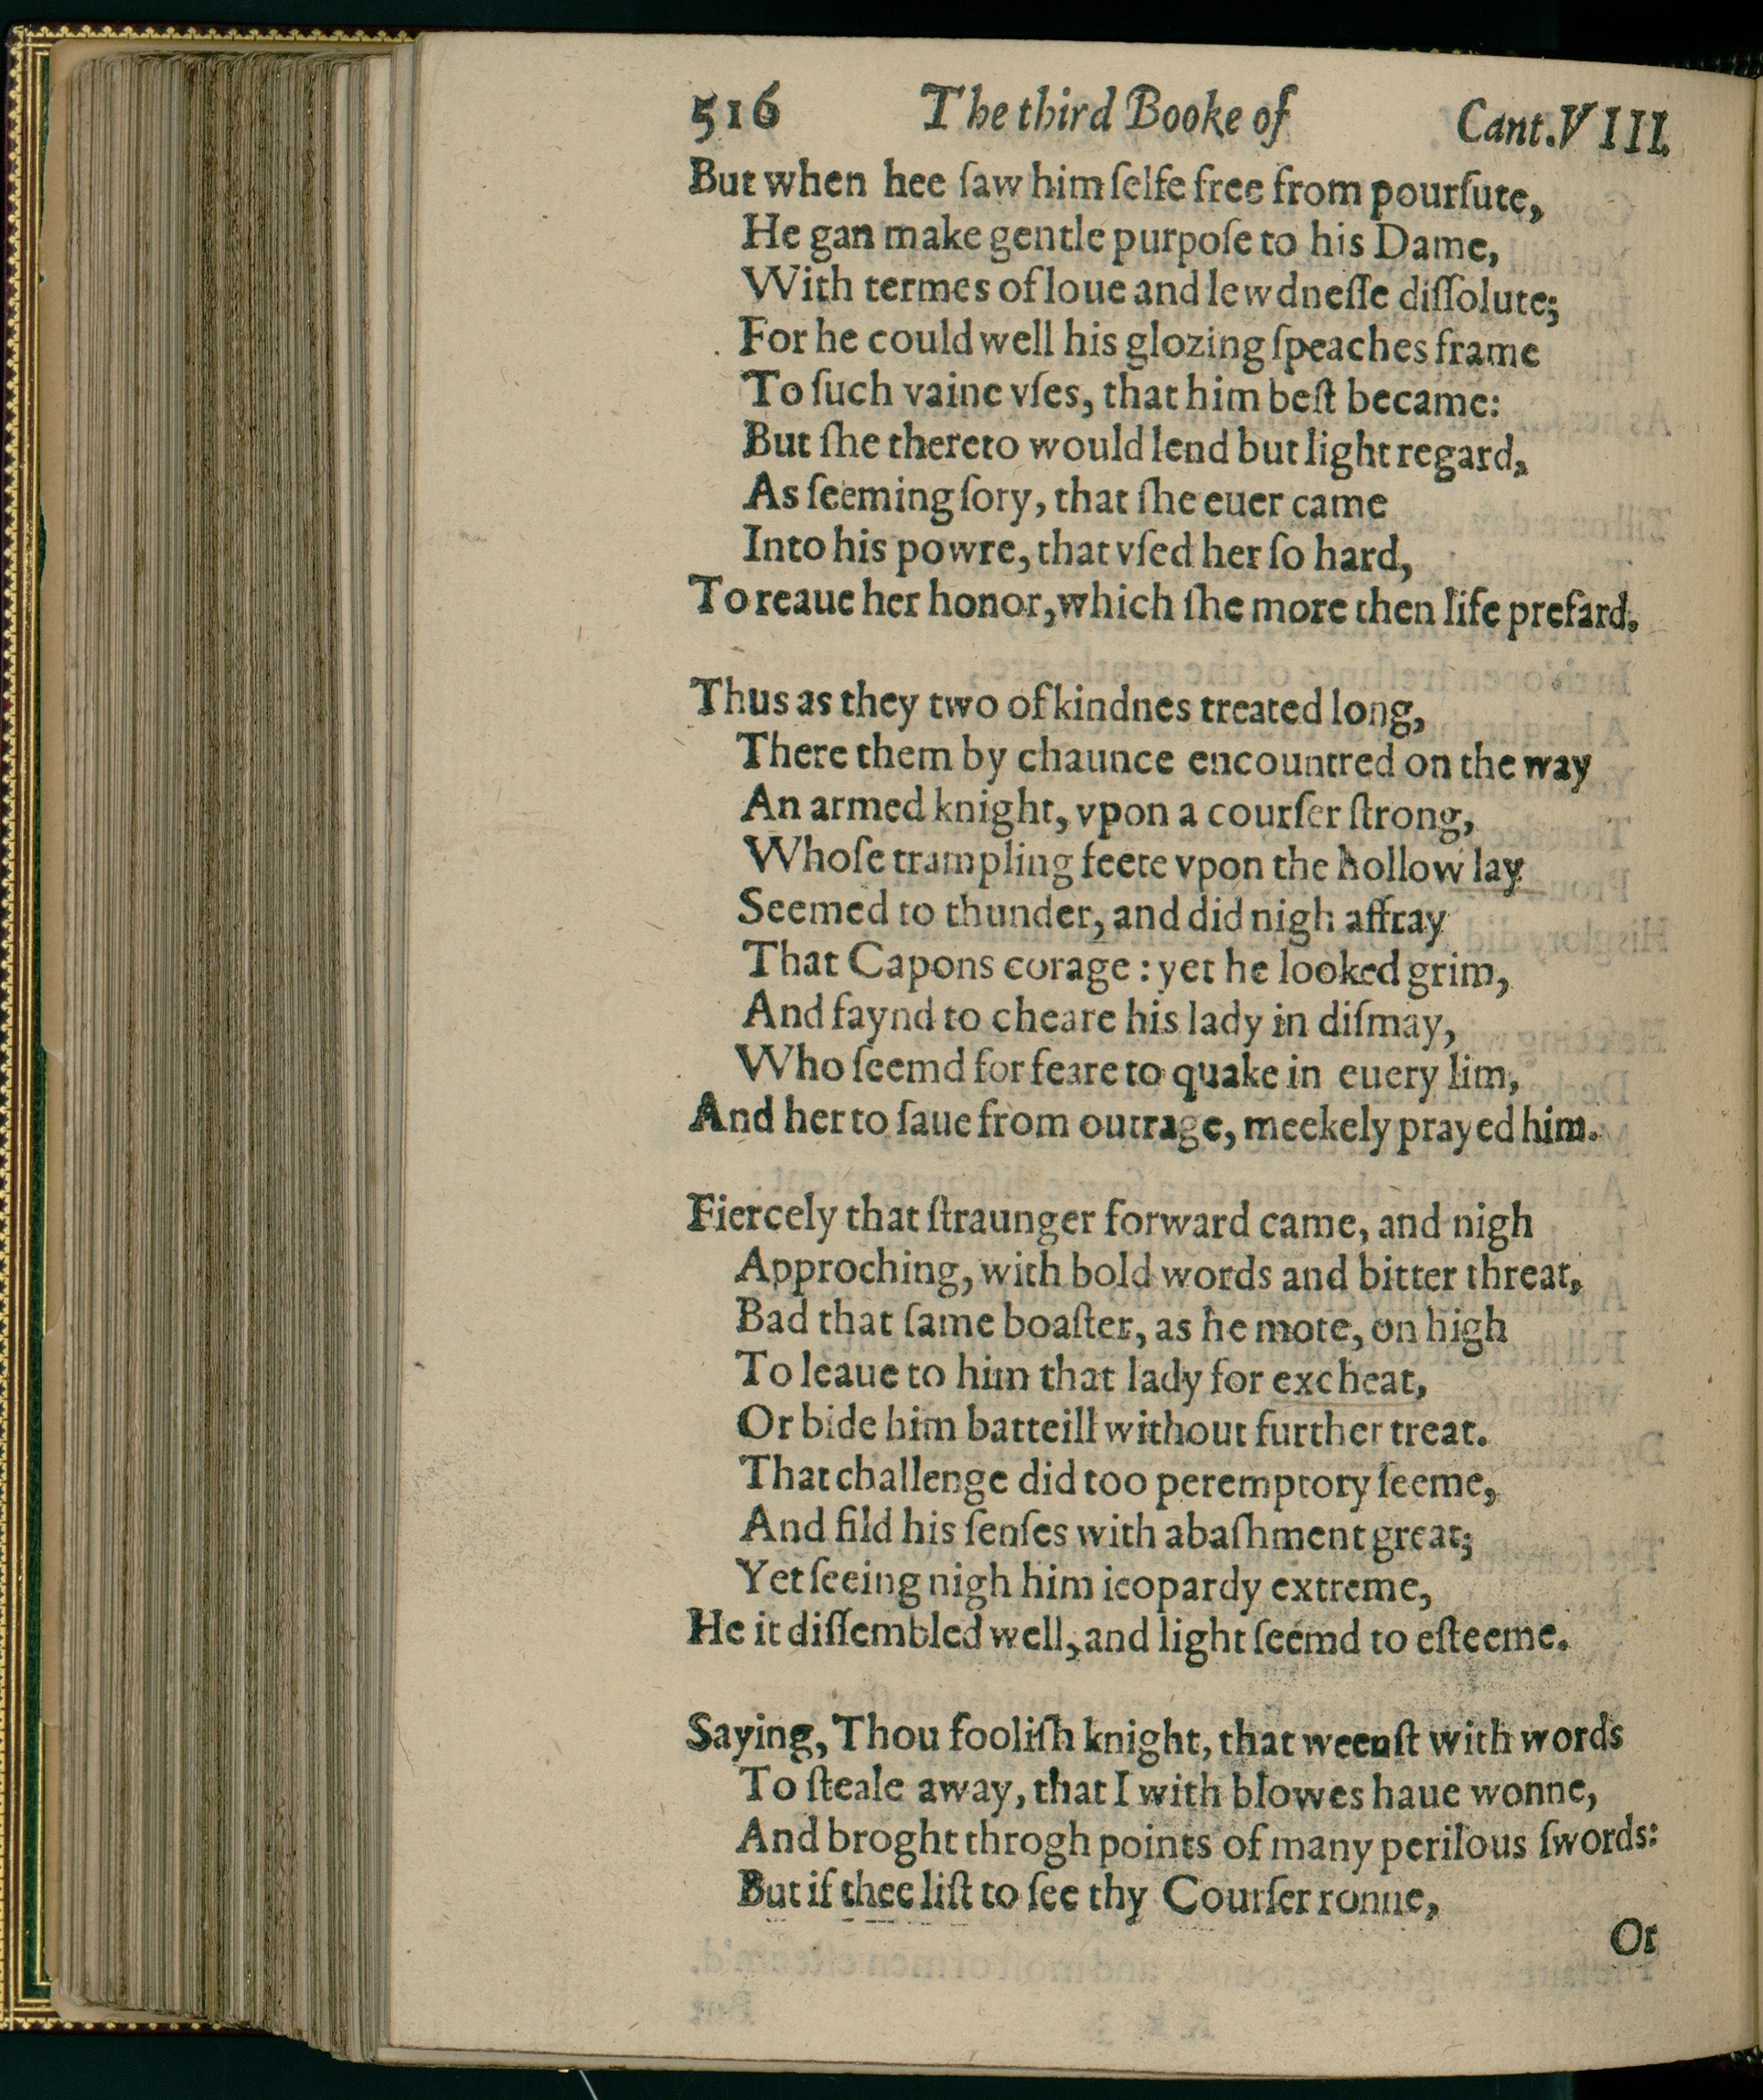 516 The third Booke of Cant.VIII.
But when hee ſaw himſelfe free from pourſute,
He gan make gentle purpoſe to his Dame,
With termes of loue and lewdneſſe diſſolute;
For he could well his glozing ſpeaches frame
To ſuch vaine vſes, that him beſt became:
But ſhe thereto would lend but light regard,
As ſeeming ſory, that ſhe euer came
Into his powre, that vſed her ſo hard,
To reaue her honor, which ſhe more then life prefard.
Thus as they two of kindnes treated long,
There them by chaunce encountred on the way
An armed knight, vpon a courſer ſtrong,
Whoſe trampling feete vpon the hollow lay
Seemed to thunder, and did nigh affray
That Capons corage : yet he looked grim,
And faynd to cheare his lady in diſmay,
Who ſeemd for feare to quake in euery lim,
And her to ſaue from outrage, meekely prayed him.
Fiercely that ſtraunger forward came, and nigh
Approching, with bold words and bitter threat,
Bad that ſame boaſter, as he mote, on high
To leaue to him that lady for excheat,
Or bide him batteill without further treat.
That challenge did too peremptory ſeeme,
And fild his ſenſes with abaſhment great;
Yet ſeeing nigh him ieopardy extreme,
He it diſſembled well, and light ſeemd to eſteeme.
Saying, Thou fooliſh knight, that weenſt with words
To ſteale away, that I with blowes haue wonne,
And broght throgh points of many perilous ſwords:
But if thee liſt to ſee thy Courſer ronne,
Or